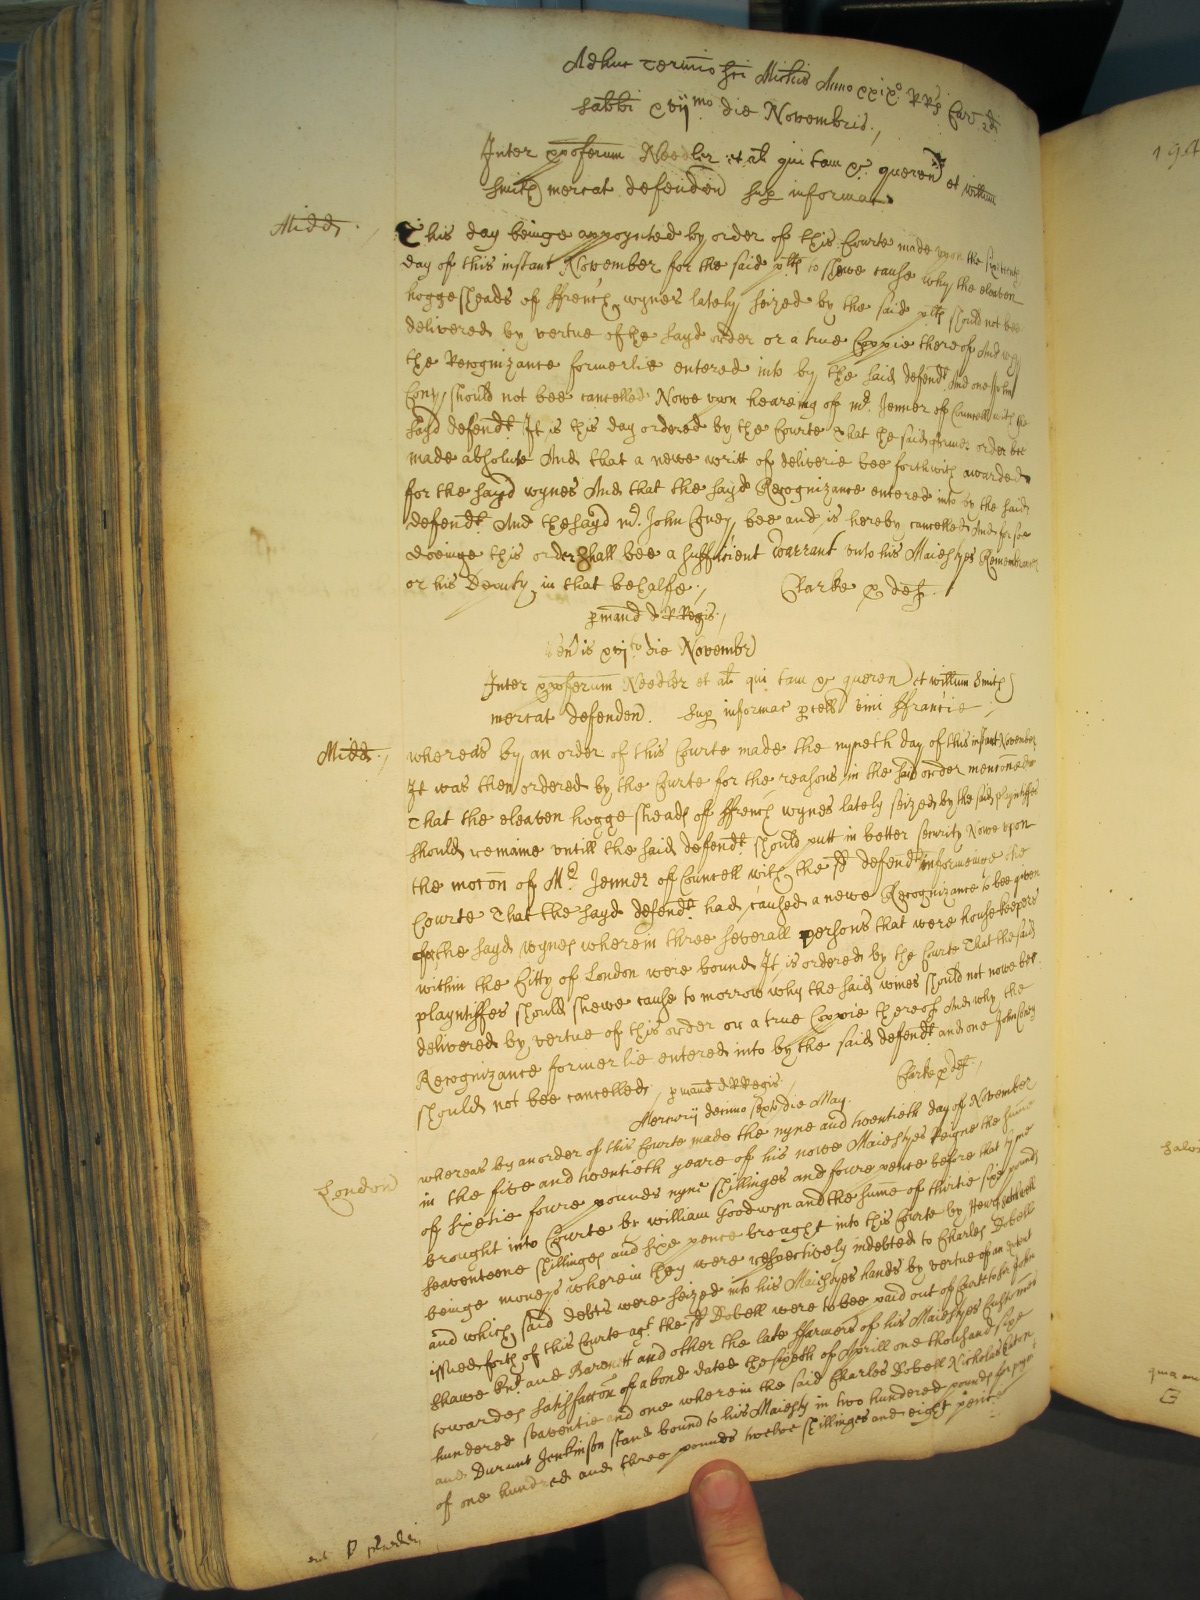 Adhuc Termino Sci Michis Anno xxixo RRs Car 2di
Sabbi xvijmo die Novembris
Inter xpoferum Needler et al qui tam &c queren et Willum
Smith mercat defenden sup informac
Midds
This day beinge appoynted by order of this Courte made upon the sixteenth
day of this instant November for the said plts to shewe cause why the eleaven
hoggesheads of ffrench wynes lately seized by the said plts should not bee
delivered by vertue of the sayd order or a true Coppie thereof And why
the Recognizance formerlie entered into by the said defendt And one John
Coney should not bee cancelled Nowe upon heareing of mr. Jenner of Councell with the
sayd defendt It is this day ordered by the Courte That the said former order bee
made absolute And that a newe writt of deliverie bee forthwith awarded
for the sayd wynes And that the sayd Recognizance entered into by the said
defendt And the sayd mr. John Coney bee and is hereby cancelled And for soe
doeinge this order shall bee a sufficient warrant unto his Maiestyes Remembrancer
or his Deputy in that behalfe Clarke p def
p mand d RRegis
Venis xvjto die Novembr
Inter xpoferum Needler et al qui tam &c queren et Willum Smith
mercat defenden sup informac pcell vini ffrancie
Midds
whereas by an order of this Courte made the nyneth day of this instant November
It was then ordered by the Courte for the reasons in the said order menconed
That the eleaven hoggesheads of ffrench wynes lately seized by the said playntiffes
should remaine untill the said defendt should putt in better security Nowe upon
the mocon of Mr Jenner of Councell with the sd defendt informeinge the
Courte That the sayd defendt had caused a newe Recognizance to bee given
for the sayd wynes wherein three severall persons that were housekeepers
within the Citty of London were bound It is ordered by the Courte That the said
playntiffes should shewe cause to morrow why the said wines should not nowe bee
delivered by vertue of this order or a true Coppie thereof And why the
Recognizance formerlie entered into by the said defendt and one John Coney
should not bee cancelled p mand d RRegis Clarke p def
Mercurij decimo sexto die May
London
whereas by an order of this Courte made the nyne and twentieth day of November
in the five and twentieth yeare of his nowe Maiestyes Reigne the summe
of sixetie foure pounds nyne shillinges and foure pence before that tyme
brought into Courte by William Goodwyn and the summe of thirtie sixe pounds
seaventeene shillinges and sixe pence brought into this Courte by Henry
beinge moneys wherein they were respectively indebted to Charles Dobell
and which said debts were seized into his Maiestyes hands by vertue of an extent
issued forth of this Courte agt. the sd Dobell were to bee paid out of Courte to Sr John
Shawe Knt and Baronett and other the late ffarmers of his Maiestyes Customes
towardes satisfaccon of a bond dated the sixeth of Aprill one thousand sixe
hundered seaventie and one wherein the said Charles Dobell Nicholas Eaton
and Durant Jenkinson stand bound to his Maiesty in two hundered pounds for paymt
of one hundred and three pounds twelve shillinges and eight pence